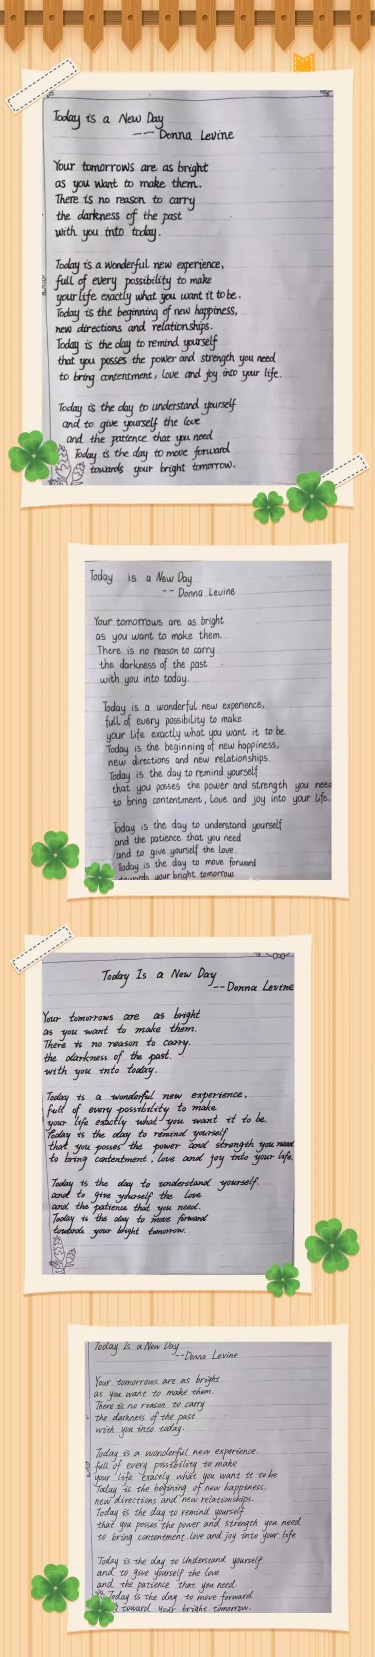 Today is a New Day
-- Donna Levine
Your tomorrows are as bright
as you want to make them.
There is no reason to carry
the darkness of the past
with you into today.
Today is a wonderful new experience,
full of every possibility to make
your life exactly what you want it to be.
Today is the beginning of new happiness,
new directions and relationships.
Today is the day to remind yourself
that you posses the power and strength you need
to bring contentment, love and joy into your life.
Today is the day to understand yourself
and to give yourself the love
and the patience that you need
Today is the day to move forward
towards your bright tomorrow.
Today is a New Day
-- Donna Levine
Your tomorrows are as bright
as you want to make them.
There is no reason to carry
the darkness of the past
with you into today.
Today is a wonderful new experience,
full of every possibility to make
your life exactly what you want it to be.
Today is the beginning of new happiness,
new directions and new relationships.
Today is the day to remind yourself
that you posses the power and strength you need
to bring contentment, love and joy into your life.
Today is the day to understand yourself
and the patience that you need
and to give yourself the love
Today is the day to move forward
towards your bright tomorrow
Today Is a New Day
--Donna Levine
Your tomorrows are as bright
as you want to make them.
There is no reason to carry.
the darkness of the past.
with you into today.
Today is a wonderful new experience,
full of every possibility to make
your life exactly what you want it to be.
Today is the day to remind yourself
that you posses the power and strength you need
to bring contentment, love and joy into your life.
Today is the day to understand yourself.
and to give yourself the love
and the patience that you need.
Today is the day to move forward
towards your bright tomorrow.
Today Is a New Day
--Donna Levine
Your tomorrows are as bright
as you want to make them.
There is no reason to carry
the darkness of the past
with you into today.
Today is a wonderful new experience,
full of every possibility to make
your life exactly what you want it to be
Today is the begining of new happeness,
new directions and new relationships.
Today is the day to remind yourself
that you posses the power and strength you need
to bring contentment, love and joy into your life
Today is the day to Understand yourself
and to give yourself the love
and the patience that you need.
Today is the day to move forward
toward your bright tomorrow.